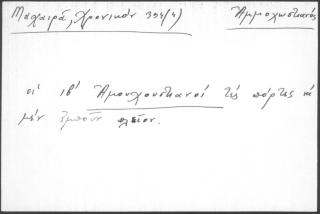 Μαχαιρά, Χρονικόν 394(4) Ἀμμοχωστιανός
οἱ ιβ΄ Ἀμουχουστιανοί τὶς πόρτες νὰ
μὲν ἔμπουν πλεῖον.